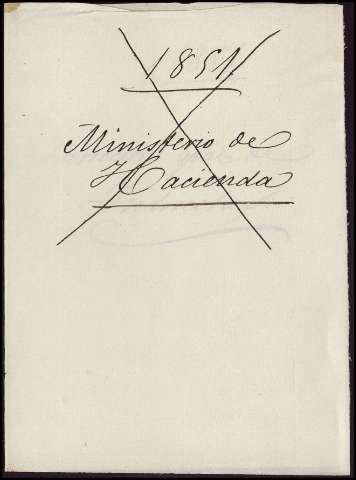 1851.
Ministerio de
Hacienda